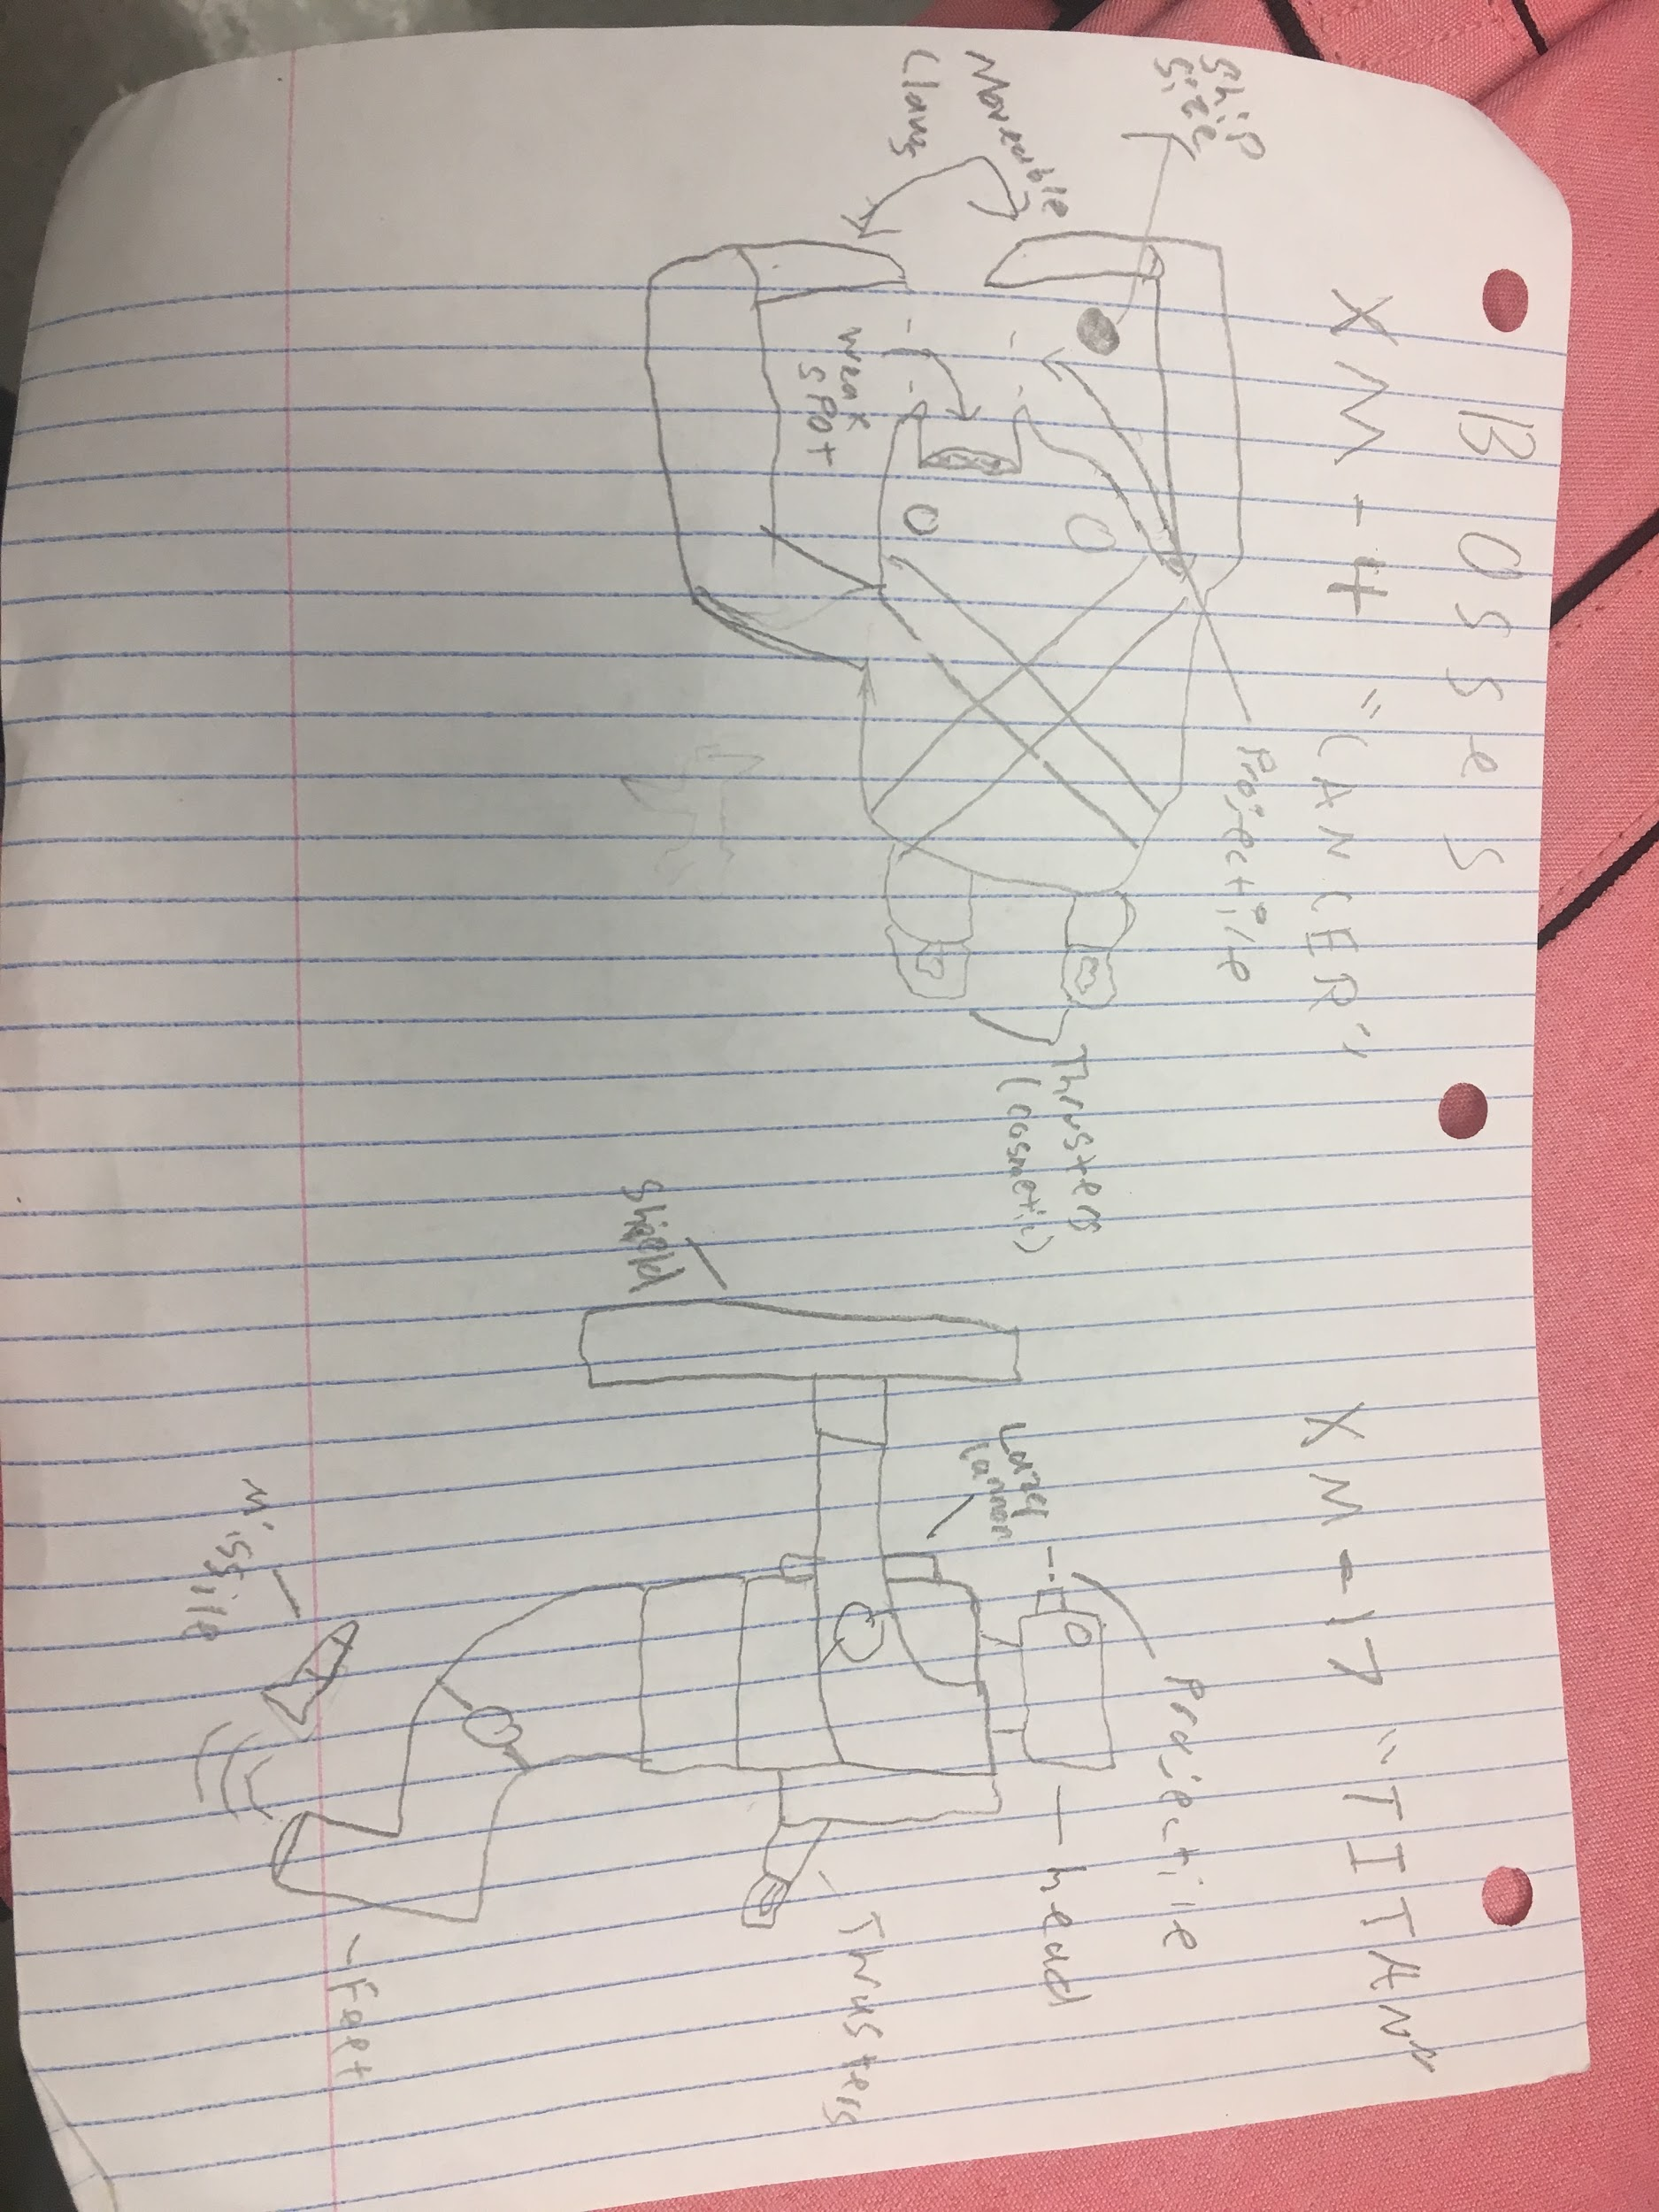 BOSSeS
XM-4 "CANCER"
Ship
Size
Moveable
Claws
Projectile
Weak
spot
Thrusters
(cosmetic)
XM-17 "TITAN"
Projectile
Lazer
Cannon
- head
Shield
Thrusters
Missile
- Feet